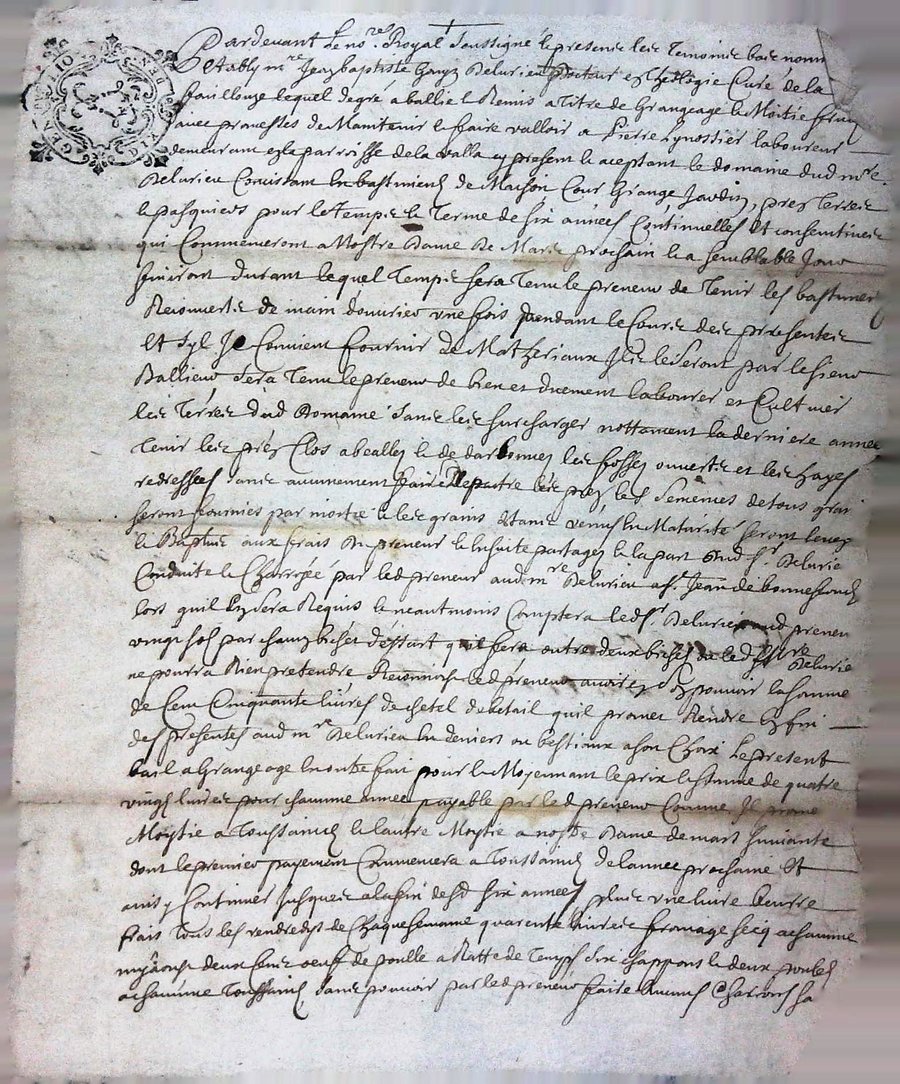 Pardevant le no.re Royal soussigné & presents les temoins bas nom
Estably m.re Jean baptiste Delurieu docteur en theologie Curé de la
faillouze lequel de gré a ballié & Remis a titre de Grangeage & Moitié
avec promesses de Maintenir & faire valloir a Pierre Linossier laboureur
demeurant en la parroisse de la valla cy present & aceptant le domaine dud m.re
Delurieu Consistant en bastiments de Maison Cour Grange Jardin, prez terres
& pasquiers pour le temps & Terme de six années Continuelles Et consentives
qui Commenceront a Nostre Dame De Mars prochain & a semblable Jour
finiront durant lequel Temps sera tenu le preneur de tenir les bastiments
Recouverts de main douvrier une fois pendant le cours des presentes
Et syl Je Convient fournir de Matheriaux Ils le seront par le sieur
Ballieur sera tenu le preneur de bien et duement labourer et Cultiver
les terres dud Domaine sans les surcharger nottament la derniere année
Tenir les prés Clos abeallés & de darbonnes les fosses ouverts et les hayes
redressées sans aucunement faire depaitre les prez les semences de tous grains
seront fournies par moitié & les grains estans venus en Maturité seront levés
& Battus aux frais du preneur & ensuite partagés & la part dud sr Delurieu
Conduite & Charroyée par led preneur aud m.re Delurieu a st Jean de bonnefond
lors quil en sera Requis & neantmoins Comptera led sr Delurieu aud preneur
vingt sols par chaun bichet quil fera outre deux led Delurieu
ne pourra Rien pretendre Reconnoit led preneur avoir en son pouvoir la somme
de Cent Cinquante livres de chetel de betail quil promet Rendre en fin
des presentes aud m.re Delurieu en deniers ou bestiaux a son Choix Le present
bail a Grangeage en outre fait pour & Moyennant le prix & somme de quatre
vingt livres pour chaunne année payable par led preneur Comme Il promet
Moytié a Toussaincts & lautre Moytié a nostre Dame de mars suivante
dont le premier payement Commencera a Toussaincts de lannee prochaine Et
ainsy Continuer Jusques a la fin desd six années plus une livre beurre
frais tous les vendredys de Chaque semaine quarente livres fromage secq a chaunne
deux cent oeuf de poulle a Ratte de temps six chappons & deux poules
a chaunne Toussaincts sans pouvoir par led preneur faire Aucuns Charrois sa